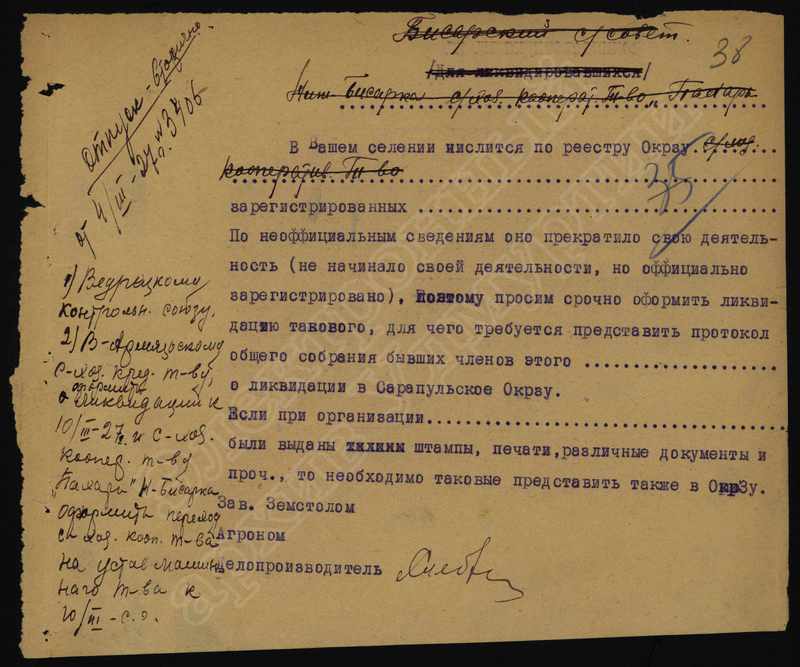 Бисарский с/совет.
38
/для ликвидировавшихся/
Ниж-Бисарка с/хоз. кооперат. Т-во "Пахарь
Отпуск-
от 4/III-27г. № 3706
В Вашем селении числится по реестру Окрзу с/хоз.
кооператив Т-во
зарегистрированных
По неоффициальным сведениям оно прекратило свою деятель-
ность (не начинало своей деятельности, но оффициально
зарегистрировано), Поэтому просим срочно оформить ликви-
дацию такового, для чего требуется представить протокол
общего собрания бывших членов этого
о ликвидации в Сарапульское Окрзу.
Если при организации
были выданы штампы, печати, различные документы и
проч., то необходимо таковые представить также в ОкрЗу.
Зав. Земстолом
Агроном
Делопроизводитель
1) Ведрецкому
контрольн. союзу.
2) В-Армязьскому
с-хоз. кред. т-ву
оформить
о ликвидации к
10/III-27г. и с-хоз.
кооper. т-ву
"Пахарь" Н-Бисарка
оформить переход
с-хоз. кооп. т-ва
на устав машин-
наго т-ва к
10/III-с.г.